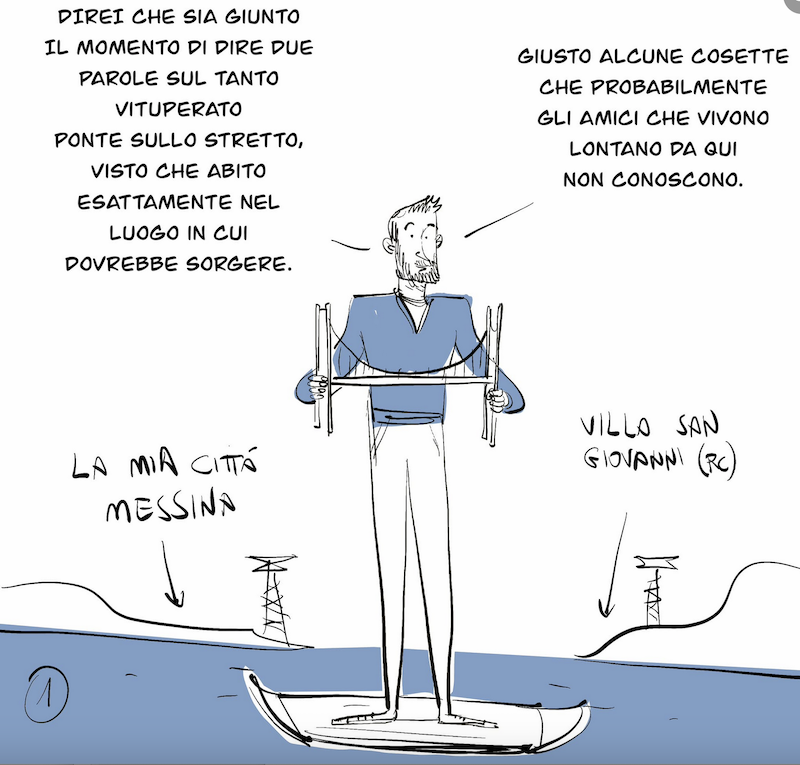 DIREI CHE SIA GIUNTO
IL MOMENTO DI DIRE DUE
PAROLE SUL TANTO
VITUPERATO
PONTE SULLO STRETTO,
VISTO CHE ABITO
ESATTAMENTE NEL
LUOGO IN CUI
DOVREBBE SORGERE.
GIUSTO ALCUNE COSETTE
CHE PROBABILMENTE
GLI AMICI CHE VIVONO
LONTANO DA QUI
NON CONOSCONO.
LA MIA CITTÁ
MESSINA
VILLA SAN
GIOVANNI (RC)
1